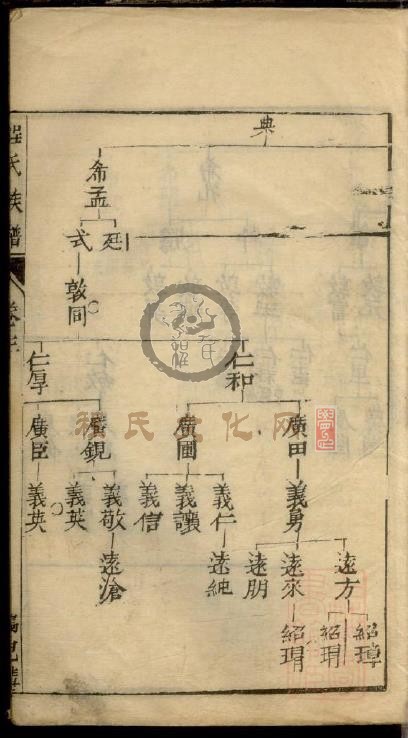 典
希孟
廷
式
敦同
仁和
仁厚
廣田
廣圃
廣鋧
廣臣
義勇
義仁
義讓
義信
義敬
義英
義英
遠方
遠來
遠朋
遠純
遠滄
紹璋
紹珥
紹珥
程氏文化网
氏族譜